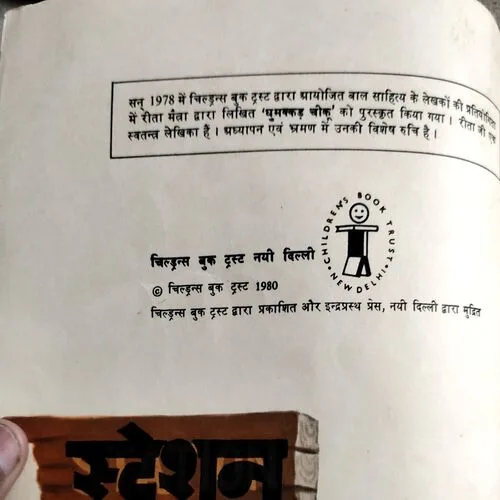 सन् 1978 में चिल्ड्रन्स बुक ट्रस्ट द्वारा आयोजित बाल साहित्य के लेखकों की प्रतियोगिता
में रीता मैत्रा द्वारा लिखित 'घुमक्कड़ चीकू' को पुरस्कृत किया गया। रीता जी एक
स्वतन्त्र लेखिका हैं। अध्यापन एवं भ्रमण में उनकी विशेष रुचि है।
चिल्ड्रन्स बुक ट्रस्ट नयी दिल्ली
CHILDREN'S BOOK TRUST
NEW DELHI
© चिल्ड्रन्स बुक ट्रस्ट 1980
चिल्ड्रन्स बुक ट्रस्ट द्वारा प्रकाशित और इन्द्रप्रस्थ प्रेस, नयी दिल्ली द्वारा मुद्रित
स्टेशन